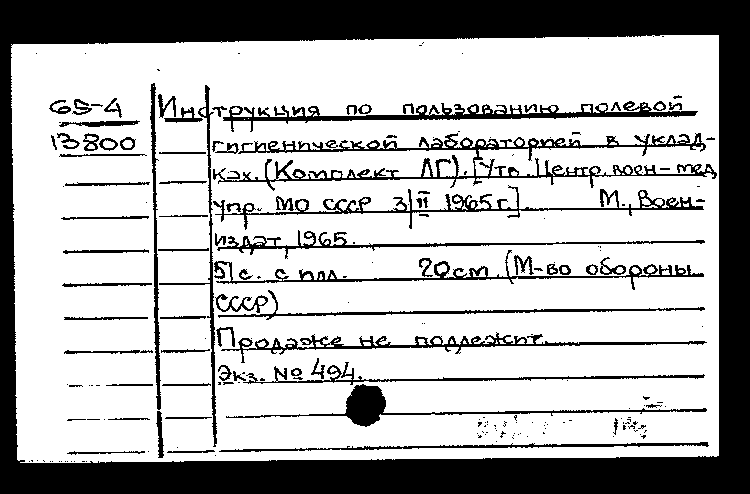 65-4 Инструкция по пользованию полевой
13800 гигиенической лабораторией в уклад-
ках. (Комплект ЛГ). [Утв. Центр. воен-мед.
упр. МО СССР 3/II 1965 г.]. М., Воен-
издат, 1965.
51 с. с илл. 20 см. (М-во обороны
СССР)
Продаже не подлежит.
Экз. № 494.